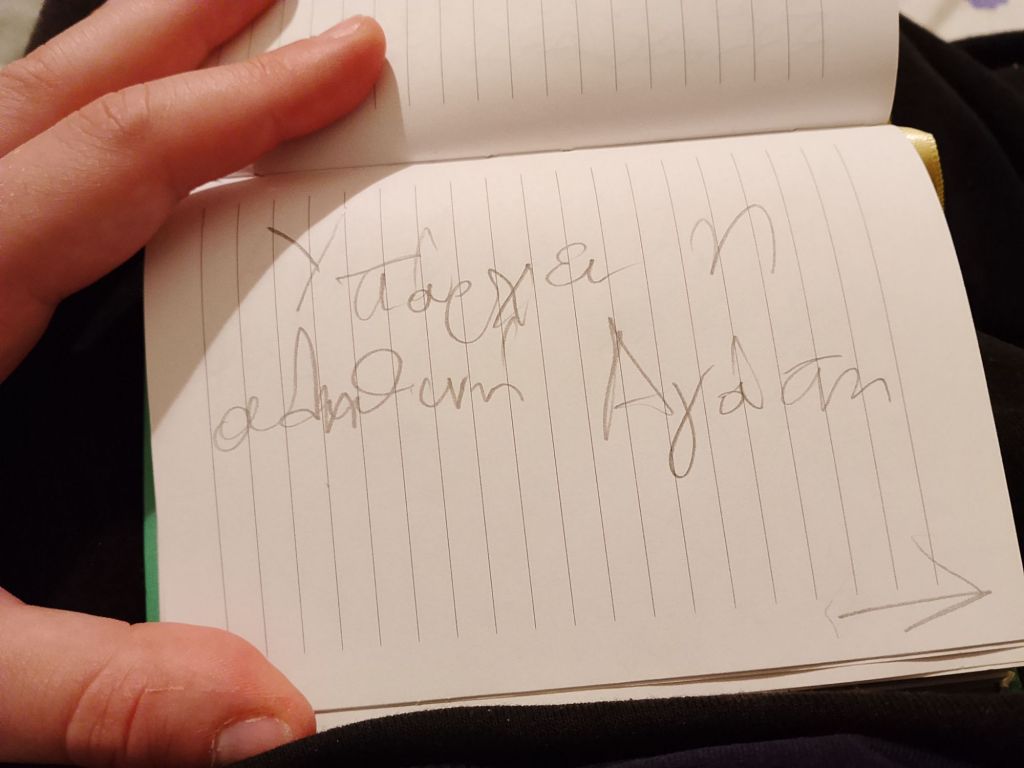 Υπάρχει η
αληθινή Αγάπη